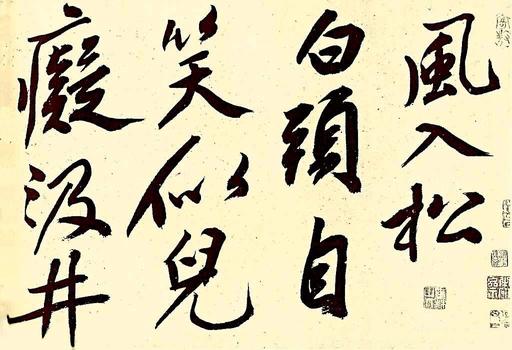 風入松
白頭自
笑似兒
癡汲井